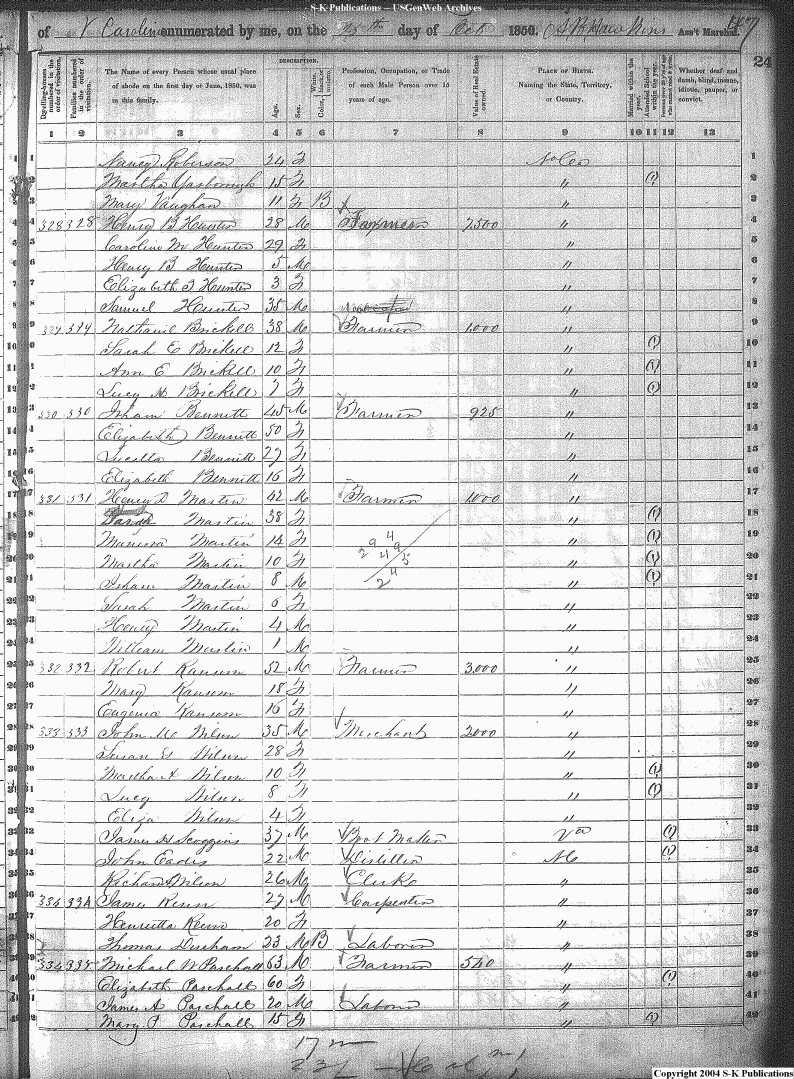 S-K Publications -- USGenWeb Archives
of N Carolina enumerated by me, on the 25th day of Oct 1850. Ass't Marshal. 247
24
DESCRIPTION.
Dwelling-houses numbered in the order of visitation.
Families numbered in the order of visitation.
The Name of every Person whose usual place of abode on the first day of June, 1850, was in this family.
Age.
Sex.
Color,
Profession, Occupation, or Trade of each Male Person over 15 years of age.
Value of Real Estate owned.
PLACE OF BIRTH. Naming the State, Territory, or Country.
Married within the year.
Attended School within the year.
Whether deaf and dumb, blind, insane, idiotic, pauper, or convict.
1 2 3 4 5 6 7 8 9 10 11 12 13
1 Nancy Roberson 24 F No Ca 1
2 Martha Yarborough 15 F " (1) 2
3 Mary Vaughan 11 F B " 3
4 328 328 Henry B Hunter 28 M Farmer 7,500 " 4
5 Caroline M Hunter 29 F " 5
6 Henry B Hunter 5 M " 6
7 Elizabeth T Hunter 3 F " 7
8 Samuel Hunter 35 M " 8
9 329 Nathaniel Brickell 38 M Farmer 1,000 " 9
10 Sarah E Brickell 12 F " (1) 10
11 Ann E Brickell 10 F " (1) 11
12 Lucy H Brickell 7 F " (1) 12
13 330 330 Isham Bennett 45 M Farmer 925 " 13
14 Elizabeth Bennett 50 F " 14
15 Lucilla Bennett 27 F " 15
16 Elizabeth Bennett 16 F " 16
17 331 331 Henry D Martin 42 M Farmer 1000 " 17
18 Sarah Martin 38 F " (1) 18
19 Martin 14 F " (1) 19
20 Martha Martin 10 F " (1) 20
21 Isham Martin 8 M " (1) 21
22 Sarah Martin 6 F " 22
23 Henry Martin 4 M " 23
24 William Martin 1 M " 24
25 332 332 Robert Ransom 52 M Farmer 3,000 " 25
26 Mary Ransom 18 F " 26
27 Eugenia Ransom 16 F " 27
28 333 333 John M Wilson 35 M Merchant 2,000 " 28
29 Susan G Wilson 28 F " 29
30 Martha A Wilson 10 F " (1) 30
31 Lucy Wilson 8 F " (1) 31
32 Eliza Wilson 4 F " 32
33 James H Scoggins 37 M Boot Maker Va (1) 33
34 John Eades 22 M Distiller NC (1) 34
35 Richard Wilson 26 M Clerk " 35
36 334 33A James Kearn 27 M Carpenter " 36
37 Henrietta Kearn 20 F " 37
38 Thomas Durham 23 M B Laborer " 38
39 334 335 Michael W Paschall 63 M Farmer 540 " 39
40 Elizabeth Paschall 60 F " (1) 40
41 James A Paschall 20 M Laborer " 41
42 Mary P Paschall 15 F " (1) 42
17 m
Copyright 2004 S-K Publications